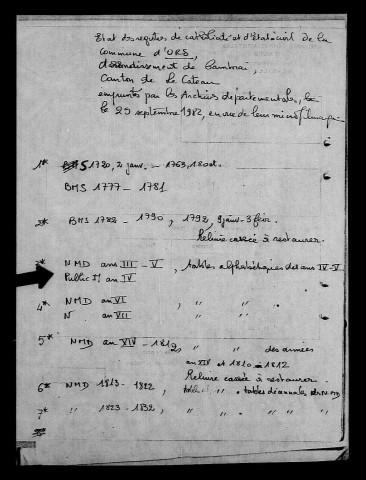 Etat des registres de catholicité et d'Etat civil de la
commune d'ORS,
Arrondissement de Cambrai,
Canton de Le Cateau
empruntés par les Archives départementales, le
le 29 septembre 1982, en vue de leur microfilmage
1* BMS 1720, 2 janv. - 1763, 18 oct.
BMS 1777 - 1781
2* BMS 1782 - 1790, 1792, 9 janv - 3 févr.
Reliure cassée à restaurer.
3* NMD ans III - V, tables alphabétiques des ans IV-V
Public M an IV
4* NMD an VI " "
N an VII " "
5* NMD an XIV - 1812, " " des années
an XIV et 1810 à 1812
6* NMD 1813 - 1822, Reliure cassée à restaurer.
" tables décennales NMD
7* " 1823 - 1832, " " " "